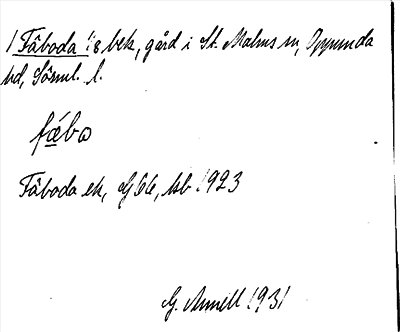 1 Fåboda 1:8 bek, gård i St. Malms sn, Oppunda
hd, Söml. l.
fǽbo
Fåboda ek, GSA, kb 1923
G. Annell 1931